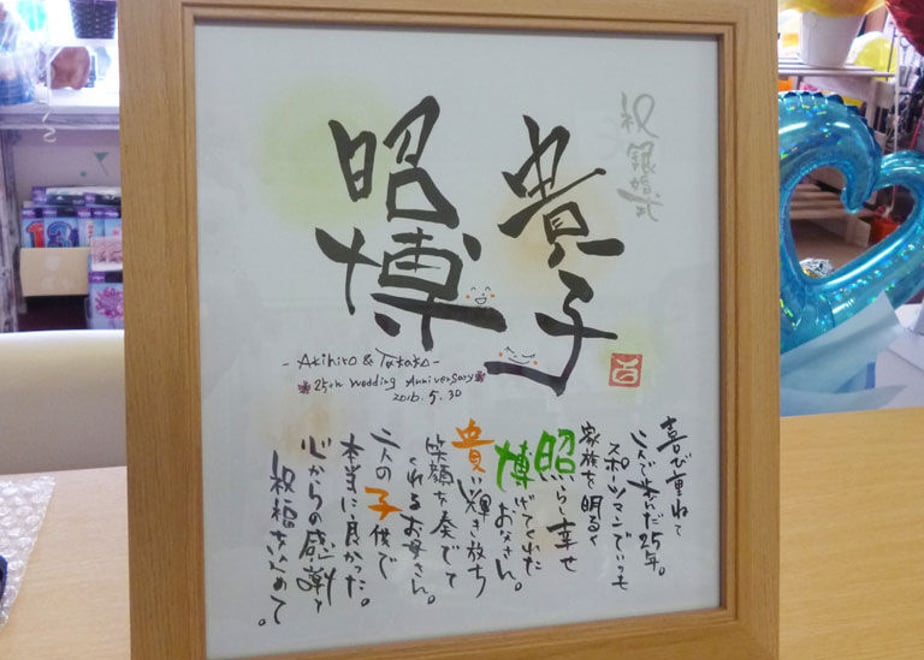 祝 銀婚式
貴子
昭博
- Akihiro & Takako -
25th Wedding Anniversary
2016. 5. 30
喜び重ねて
二人で歩んだ25年。
スポーツマンでいつも
家族を明るく
照らし幸せ
博げてくれたお父さん。
貴い輝き放ち
笑顔を奏でて
くれるお母さん。
二人の子供で
本当に良かった。
心からの感謝と
祝福を込めて。
13